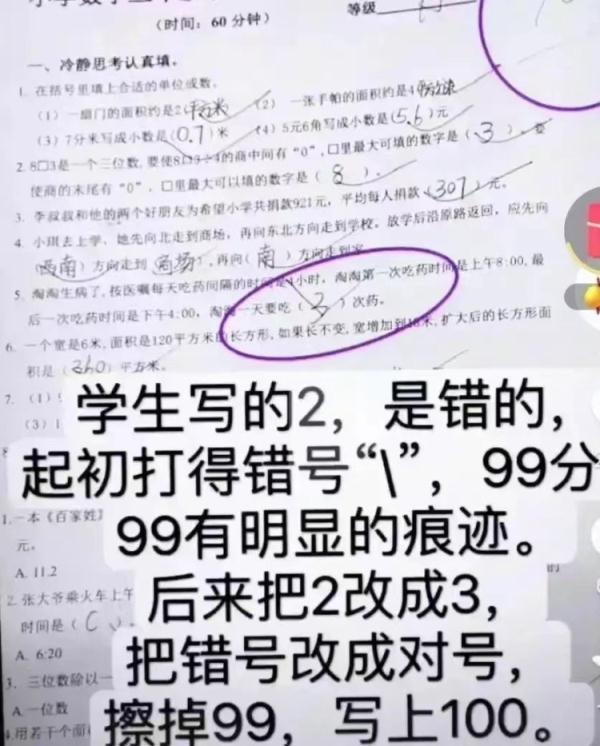 （时间：60 分钟）
等级
一、冷静思考认真填。
1. 在括号里填上合适的单位或数。
（1）一扇门的面积约是2（平方米）（2）一张手帕的面积约是4（平方分米）
（3）7分米写成小数是（0.7）米 （4）5元6角写成小数是（5.6）元
2. 8□3是一个三位数，要使8□3÷4的商中间有“0”，□里最大可填的数字是（3）。要
使商的末尾有“0”，□里最大可以填的数字是（8）。
3. 李叔叔和他的两个好朋友为希望小学共捐款921元，平均每人捐款（307）元。
4. 小琪去上学，她先向北走到商场，再向东北方向走到学校。放学后沿原路返回，应先向
（西南）方向走到（商场），再向（南）方向走到家
5. 淘淘生病了，按医嘱每天吃药间隔的时间是4小时，淘淘第一次吃药时间是上午8:00，最
后一次吃药时间是下午4:00，淘淘一天要吃（3）次药。
6. 一个宽是6米，面积是120平方米的长方形，如果长不变，宽增加到18米，扩大后的长方形面
积是（360）平方米。
7.（1）
（3）1
学生写的2，是错的，
起初打得错号“\”，99分
99有明显的痕迹。
后来把2改成3，
把错号改成对号，
擦掉99，写上100。
1.一本《百家姓》
元。
A. 11.2
2. 张大爷乘火车上午
时间是（C）。
A. 6:20
3. 三位数除以一
A. 一位数
4.用若干个面